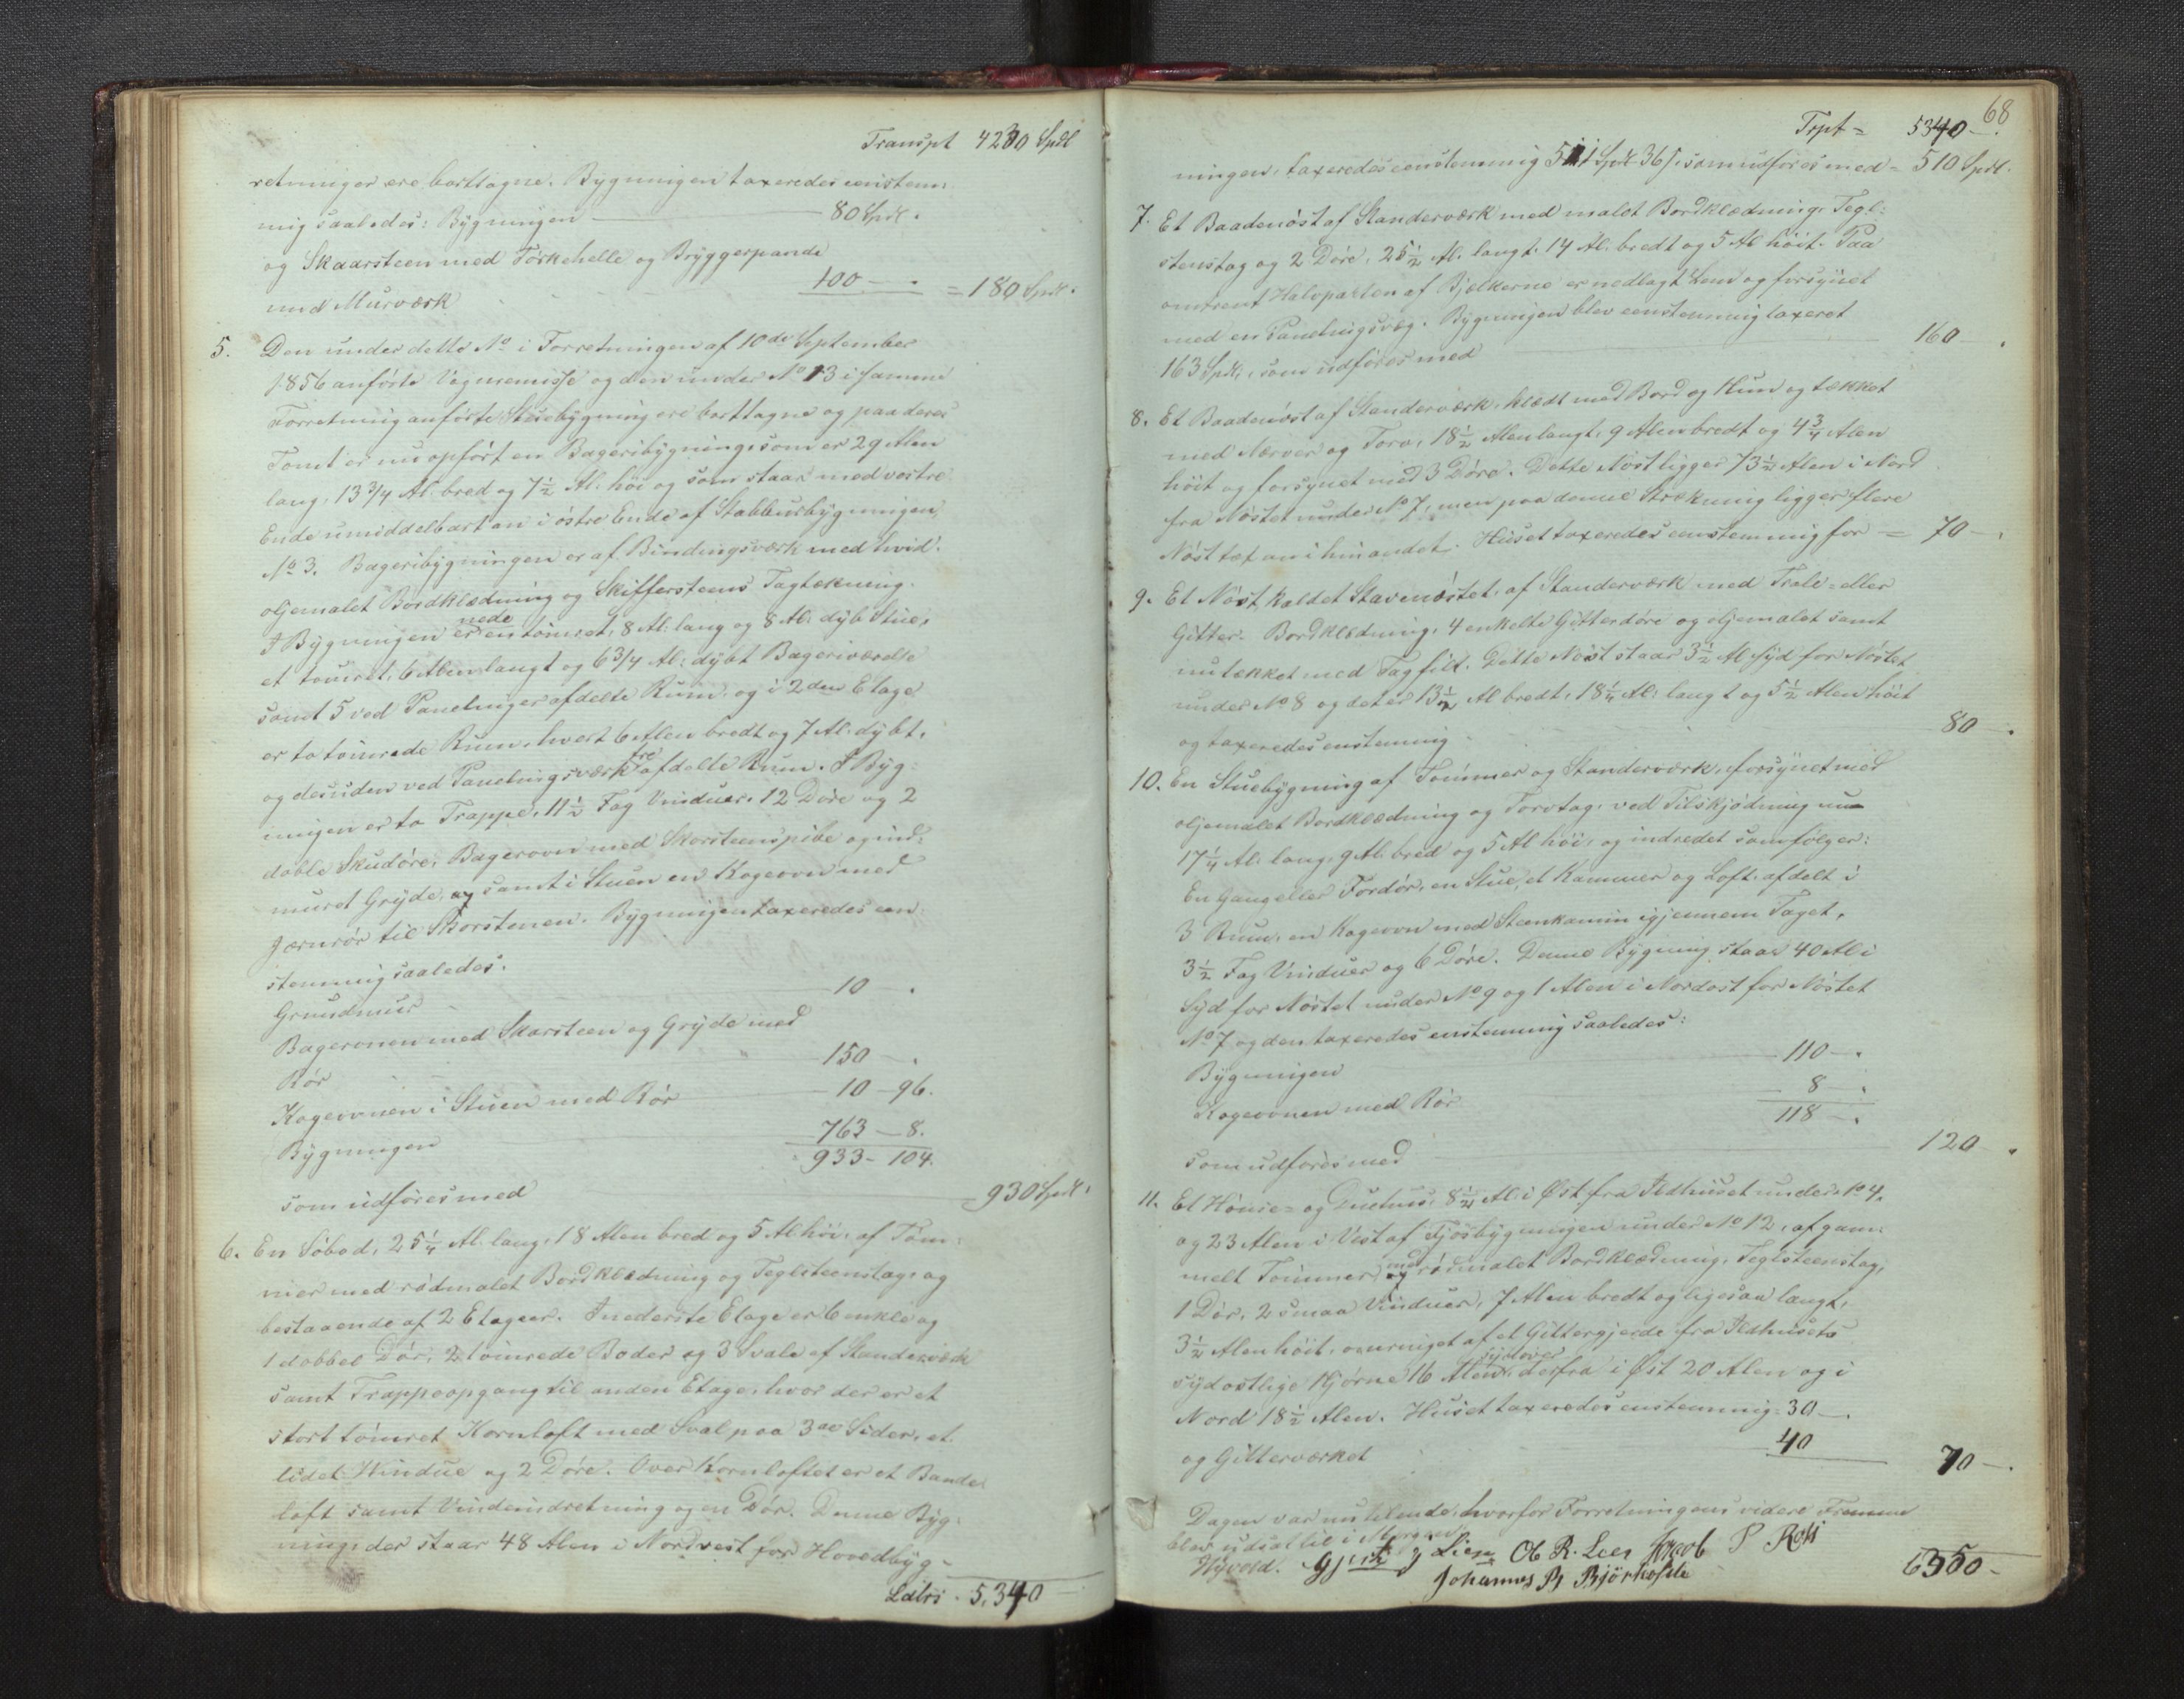 Transpt 4230 Spdl
retninger ere borttagne. Bygningen taxeredes eenstem-
mig saaledes: Bygningen — 80 Spdl.
og Skaarsteen med Törkehelle og Bryggerpande
med Murværk 100 — = 180 Spdl.
5. Den under dette No i Forretningen af 10de September
1856 anförte Vognremisse og den under No 13 i samme
Forretning anförte Stuebygning ere borttagne og paa deres
Tomt er nu opfört en Bageribygning, som er 29 Alen
lang, 13 3/4 Al. bred og 7 1/2 Al. höi og som staar med vestre
Ende umiddelbart an i östre Ende af Stabbursbygningen
No 3. Bageribygningen er af Bindingsværk med hvid-
oljemalet Bordklædning og Skiffersteens Tagtækning.
I Bygningen er nede en tömret, 8 Al. lang og 8 Al. dyb Stue,
et tömret, 6 Alen langt og 6 3/4 Al. dybt Bageriværelse
samt 5 ved Panelinger afdelte Rum, og i 2den Etage
er to tömrede Rum, hvert 6 Alen bredt og 7 Al. dybt,
og desuden ved Panelingsværk tre afdelte Rum. I Byg-
ningen er to Trappe, 11 1/2 Fag Vinduer, 12 Döre og 2
doble Skudöre, Bagerovn med Skorsteenspibe og ind-
muret Gryde, og samt i Stuen en Kogeovn med
Jernrör til Skorstenen. Bygningen taxeredes een-
stemmig saaledes.
Grundmur 10 —
Bagerovnen med Skarsteen og Gryde med
Rör 150 —
Kogeovnen i Stuen med Rör 10 - 96.
Bygningen 763 - 8.
933 - 104.
som udföres med = 930 Spdl.
6. En Söbod, 25 1/4 Al. lang, 18 Alen bred og 5 Al. höi, af Töm-
mer med rödmalet Bordklædning og Teglsteenstag, og
bestaaende af 2 Etager. I nederste Etage er 6 enkle og
1 dobbel Dör, 2 tömrede Boder og 3 Svale af Standerværk
samt Trappeopgang til anden Etage, hvor der er et
stort tömret Kornloft med Sval paa 3de Sider, et
lidet Windue og 2 Döre. Over Kornloftet er et Bande
loft samt Vindeindretning og en Dör. Denne Byg-
ning, der staar 48 Alen i Nordvest for Hovedbyg-
Latri. 5,340
68
Trpt = 5340 —
ningen, taxeredes eenstemmig 511 Spdl 36 s, som udföres med = 510 Spdl.
7. Et Baadenöst af Standerværk med malet Bordklædning, Tegl-
stenstag og 2 Döre, 25 1/2 Al. langt, 14 Al. bredt og 5 Al höit. Paa
omtrent Halvparten af Bjelkerne er nedlagt Lem og forsynet
med en Panelingsvæg. Bygningen blev eenstemmig taxeret
163 Spdl, som udföres med 160 —
8. Et Baadenöst af Standerværk, klædt med Bord og Hun og tækket
med Næver og Torv, 18 1/2 Alen langt, 9 Alen bredt og 4 3/4 Alen
höit og forsynet med 3 Döre. Dette Nöst ligger 73 1/2 Alen i Nord
fra Nöstet under No 7, men paa denne Strækning ligger flere
Nöst tæt an i hinandet. Huset taxeredes eenstemmig for = 70 —
9. Et Nöst, kaldet Stavenöstet, af Standerværk med Trale- eller
Gitter- Bordklædning, 4 enkelte Gitterdöre og oljemalet samt
nu tækket med Tagfild. Dette Nöst staar 3 1/2 Al. Syd for Nöstet
under No 8 og det er 13 1/2 Al bredt, 18 1/4 Al. langt og 5 1/2 Alen höit
og taxeredes enstemmig 80 —
10. En Stuebygning af Tömmer og Standerværk, forsynet med
oljemalet Bordklædning og Torvtag, ved Tilskjödning nu
17 1/4 Al. lang, 9 Al. bred og 5 Al höi, og indredet som fölger:
En Gang eller Fordör, en Stue, et Kammer og Loft, afdelt i
3 Rum, en Kogeovn med Steenkamin igjennem Taget,
3 1/2 Fag Vinduer og 6 Döre. Denne Bygning staar 40 Al i
Syd for Nöstet under No 9 og 1 Alen i Nordost for Nöstet
No 7 og den taxeredes enstemmig saaledes:
Bygningen 110 —
Kogeovnen med Rör 8 —
118 —
som udföres med 120
11. Et Hönse- og Duehus, 8 1/2 Al. i Øst fra Ildhuset under No 4,
og 23 Alen i Vest af Fjösbygningen under No 12, af gam-
melt Tömmer, og med rödmalet Bordklædning, Teglsteenstag,
1 Dör, 2 smaa Vinduer, 7 Alen bredt og ligesaa langt,
3 1/2 Alen höit, omringet af et Gittergjerde fra Ildhusets
sydostlige Hjörne 16 Alen sydover, derfra i Øst 20 Alen og i
Nord 18 1/2 Alen. Huset taxeredes enstemmig 30 —
og Gitterværket 40 70 —
Dagen var nu tilende, hvorfor Forretningens videre Fremme
blev udsat til i Morgen.
Ob R. Leen Jacob P Roti
Johannes P Björhofde
6350 -